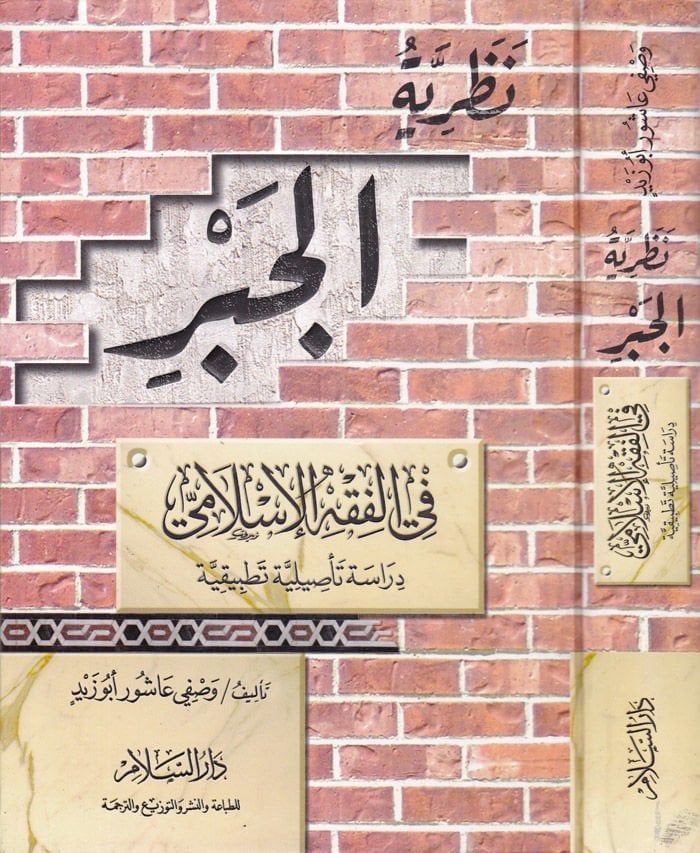 نَظَرِيَّةُ
الجَبْرِ
فِي الفِقْهِ الإِسْلَامِيِّ
دِرَاسَة تَأصِيليَّة تَطبِيقِيَّة
تَأليفُ/ وَصْفِي عَاشُور أَبُو زَيْدٍ
دَارُ السَّلَامِ
للطباعة والنشر والتوزيع والترجمة
وَصْفِي عَاشُور أَبُو زَيْدٍ
نَظَرِيَّةُ
الجَبْرِ
فِي الفِقْهِ الإِسْلَامِيِّ
دِرَاسَة تَأصِيليَّة تَطبِيقِيَّة
دَارُ السَّلَامِ